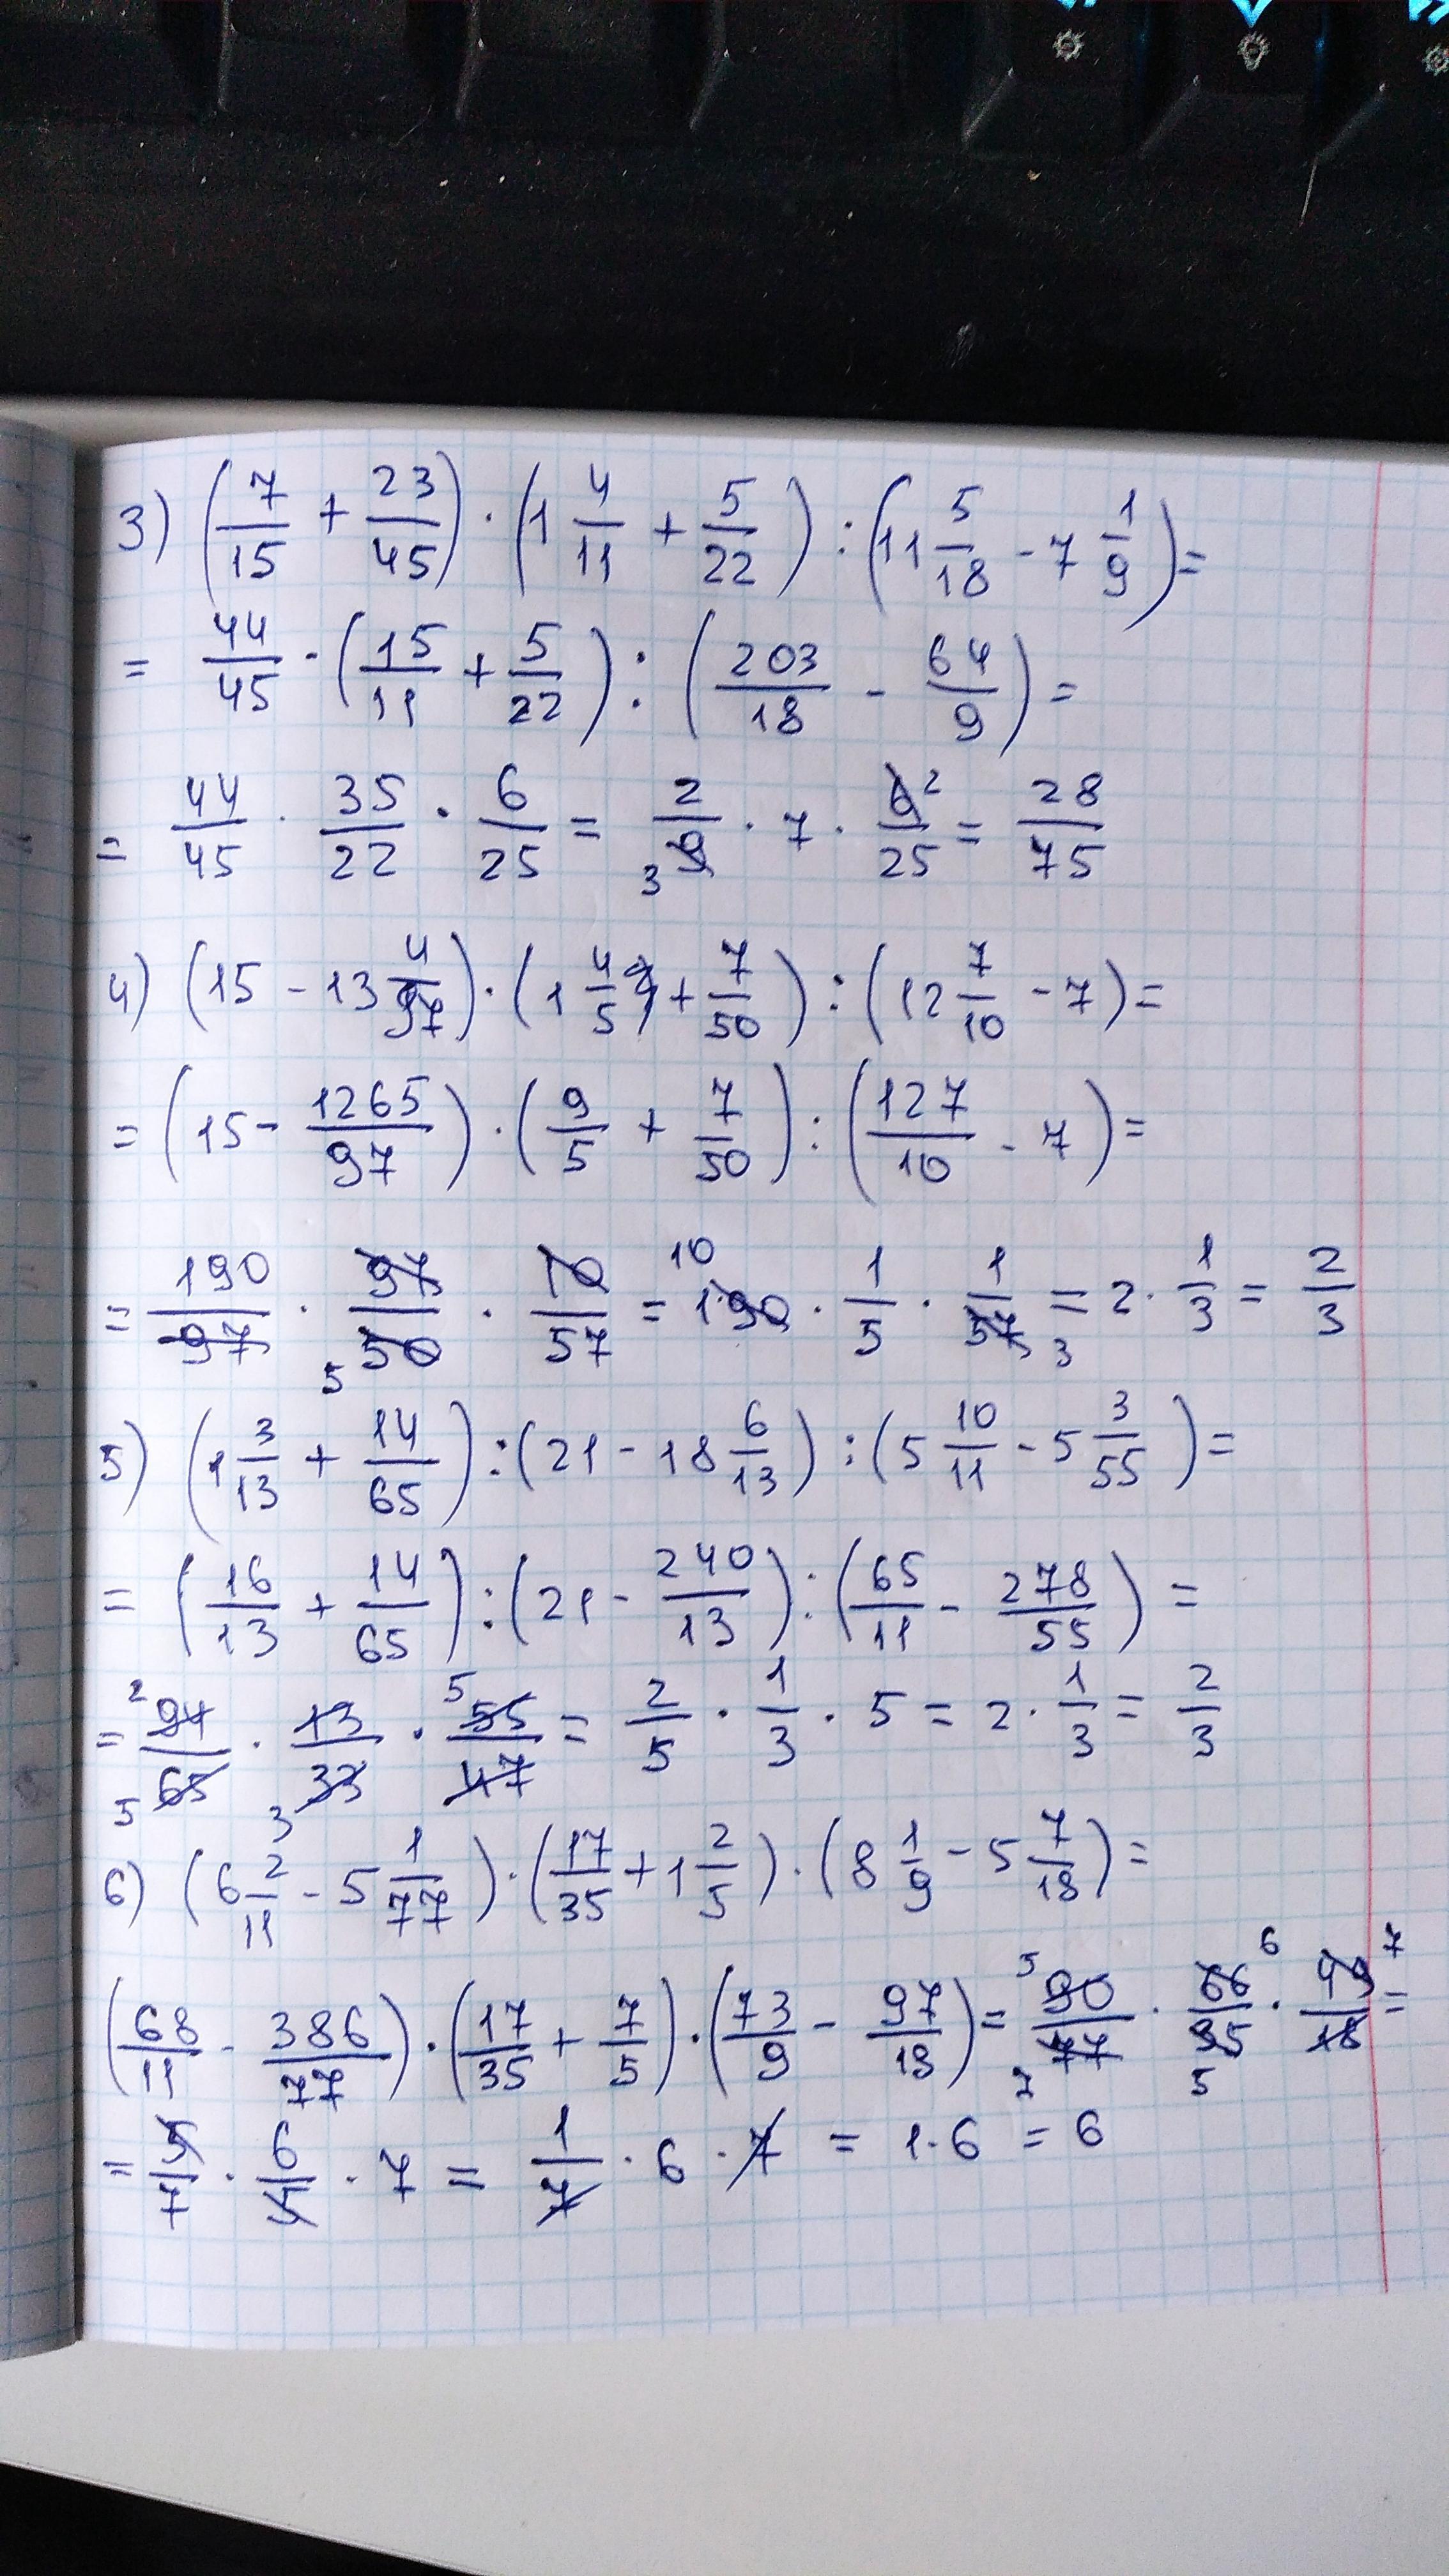 3) (7/15 + 23/45) · (1 4/11 + 5/22) : (11 5/18 - 7 1/9) =
= 44/45 · (15/11 + 5/22) : (203/18 - 64/9) =
= 44/45 · 35/22 · 6/25 = 2/9 3 · 7 · 6 2/25 = 28/75
4) (15 - 13 4/97) · (1 4/5 + 7/50) : (12 7/10 - 7) =
= (15 - 1265/97) · (9/5 + 7/50) : (127/10 - 7) =
= 190/97 · 97/50 5 · 10/57 = 190 10 · 1/5 · 1/57 3 = 2 · 1/3 = 2/3
5) (1 3/13 + 14/65) : (21 - 18 6/13) : (5 10/11 - 5 3/55) =
= (16/13 + 14/65) : (21 - 240/13) : (65/11 - 278/55) =
= 2 94/65 5 · 13/33 3 · 5 55/47 = 2/5 · 1/3 · 5 = 2 · 1/3 = 2/3
6) (6 2/11 - 5 1/77) · (17/35 + 1 2/5) · (8 1/9 - 5 7/18) =
(68/11 - 386/77) · (17/35 + 7/5) · (73/9 - 97/18) = 5 90/77 7 · 66 6/35 5 · 49 7/18 =
= 5/7 · 6/5 · 7 = 1/7 · 6 · 7 = 1 · 6 = 6